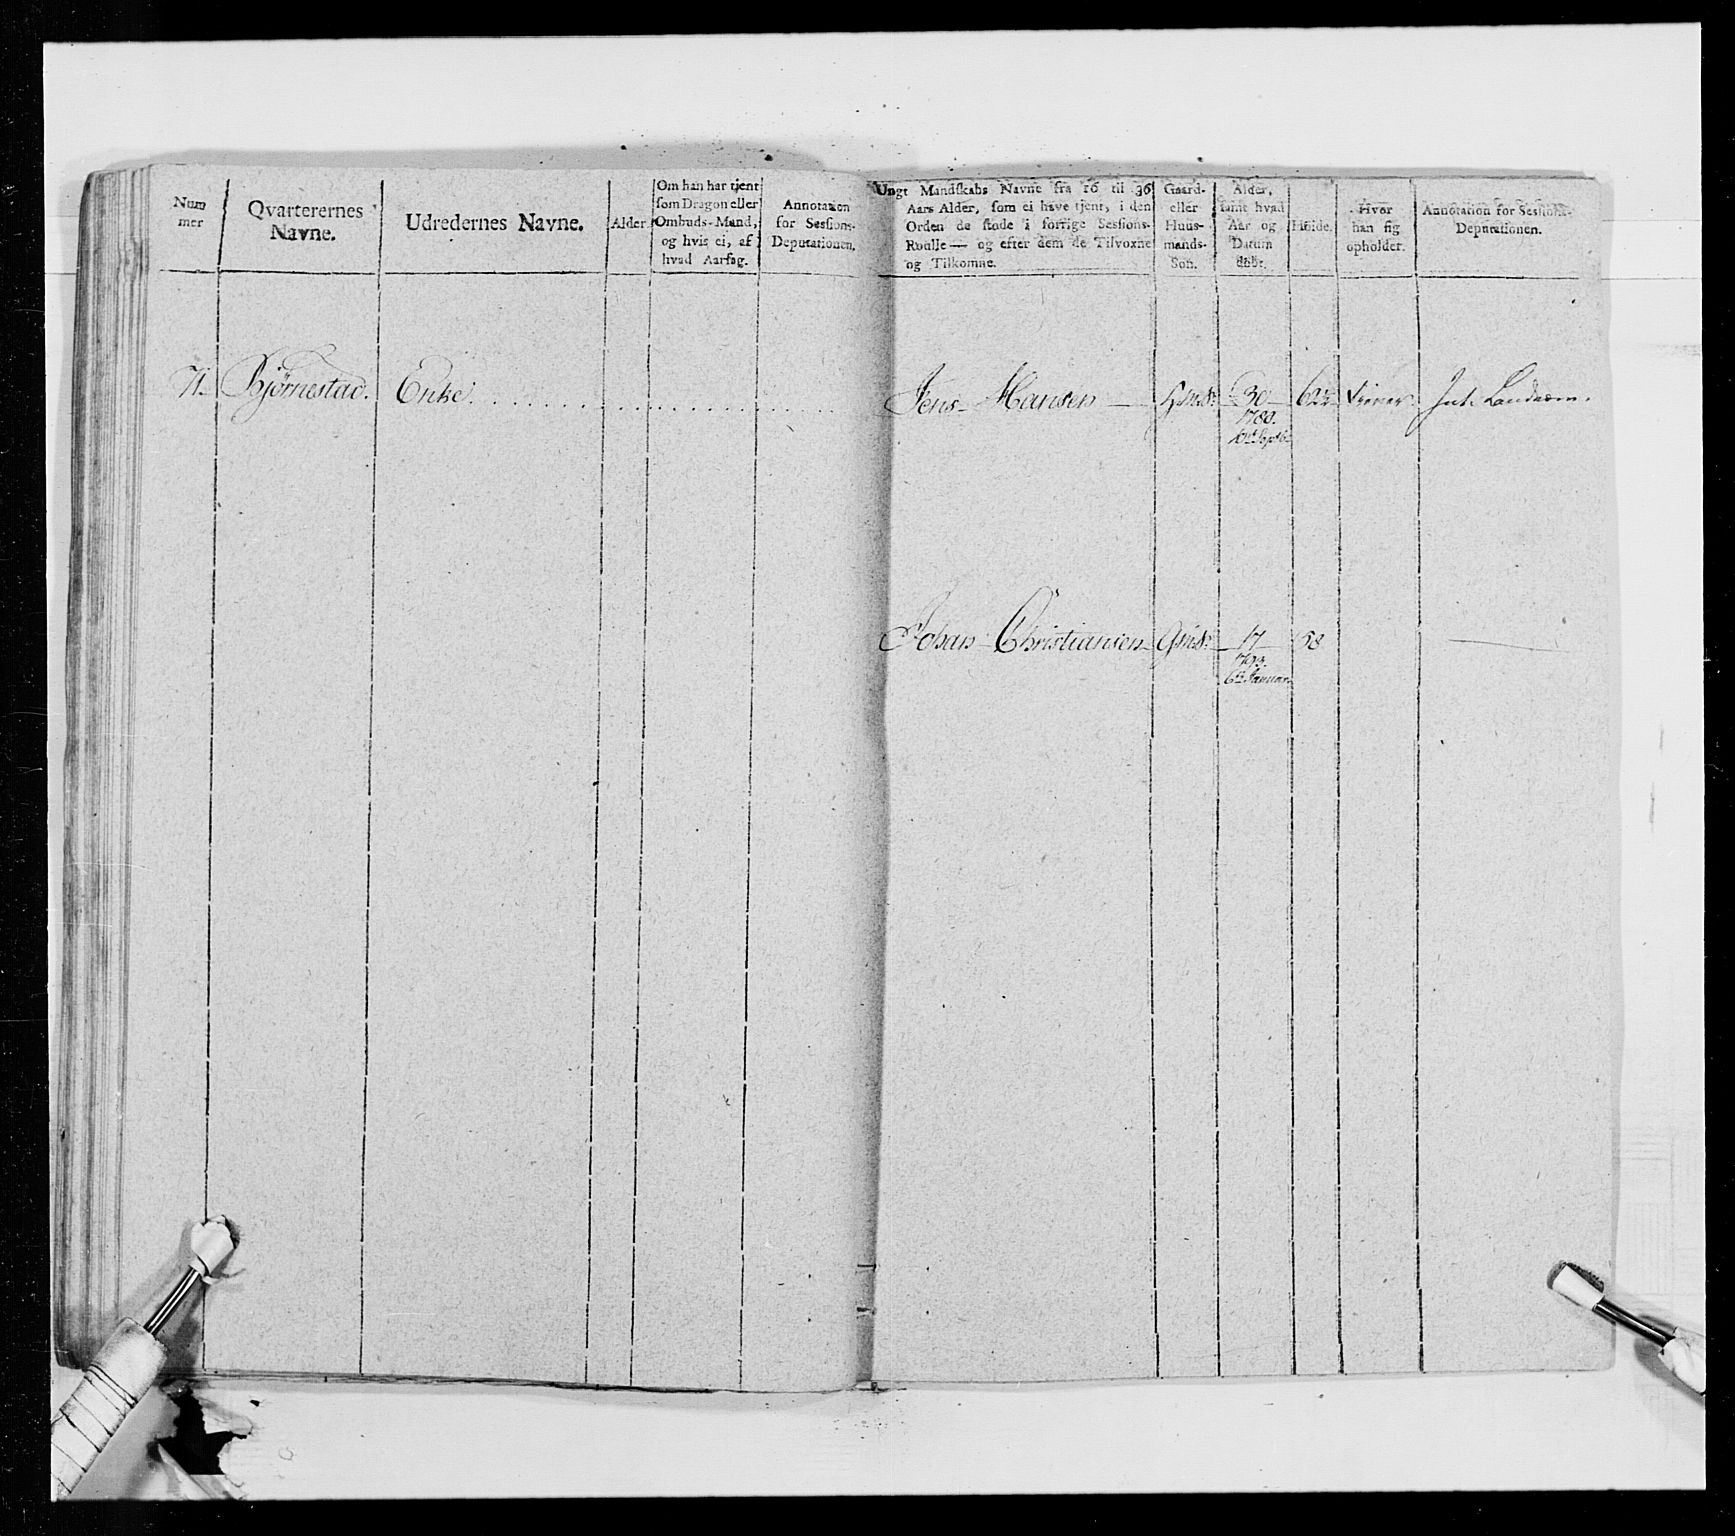 Num
mer
Qvarterernes
Navne.
Udredernes Navne.
Alder.
Om han har tjent
som Dragon eller
Ombuds-Mand,
og hvis ei, af
hvad Aarsag.
Annotation
for Sessions-
Deputationen.
Ungt Mandskabs Navne fra 16 til 36
Aars Alder, som ei have tjent, i den
Orden de stode i forrige Sessions-
Roulle — og efter dem de Tilvoxne
og Tilkomne.
Gaard-
eller
Huus-
mands-
Søn.
Alder,
samt hvad
Aar og
Datum
født.
Høide.
Hvor
han sig
opholder.
Annotation for Sessions-
Deputationen.
71. Bjørnestad. Enke.
Jens Hansen — 30
1780.
Int. Landværn.
Johan Christiansen Gms: 17 58
1793.
6te Januar.